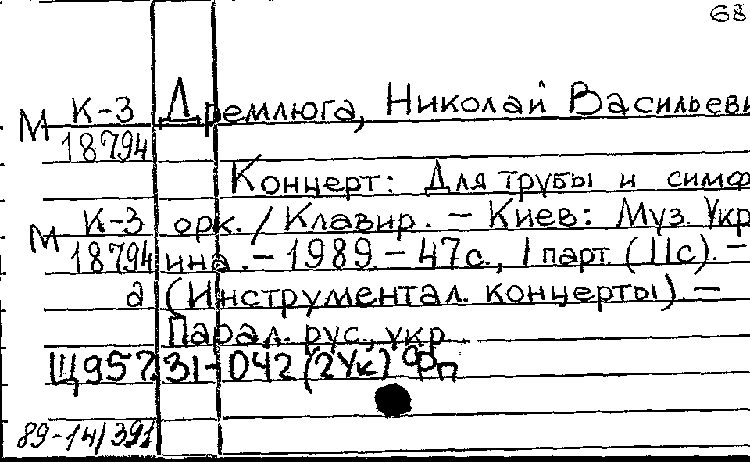 68
М К-3 Дремлюга, Николай Васильеви
18794
Концерт: Для трубы и симф
М К-3 орк. / Клавир. – Киев: Муз. Укр
18794 ина. – 1989. – 47с., 1 парт. (11с). –
а (Инструментал. концерты). –
Парал. рус., укр.
Щ957.31-042(2Ук) Фп
89-14/391